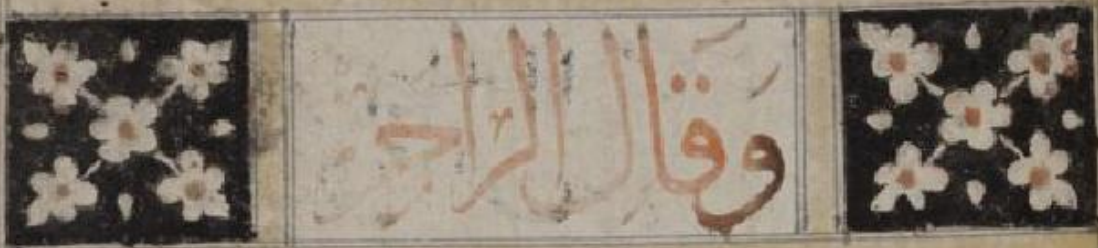 وَقَال الراجز